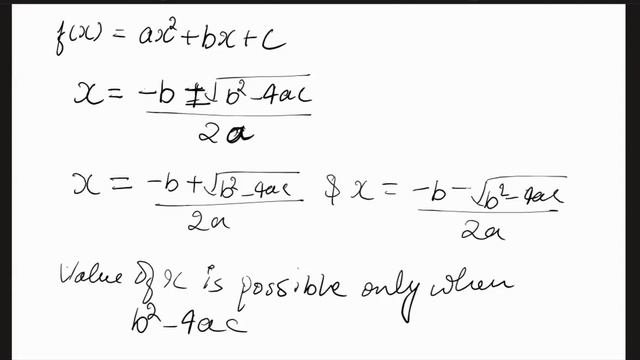 f(x) = ax² + bx + c
x = -b ± √(b² - 4ac) / 2a
x = -b + √(b² - 4ac) / 2a & x = -b - √(b² - 4ac) / 2a
Value of x is possible only when
b² - 4ac